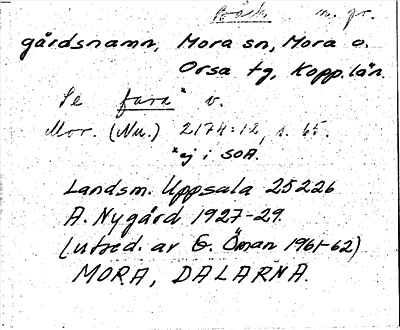 Bäck m. gr.
gårdsnamn, Mora sn, Mora o.
Orsa tg, Kopp. län.
Se fara* v.
Mor. (Nu.) 2174:12, s. 65.
*ej i SOA.
Landsm. Uppsala 25226
A. Nygård 1927-29.
(utred. av E. Öman 1961-62)
MORA, DALARNA.